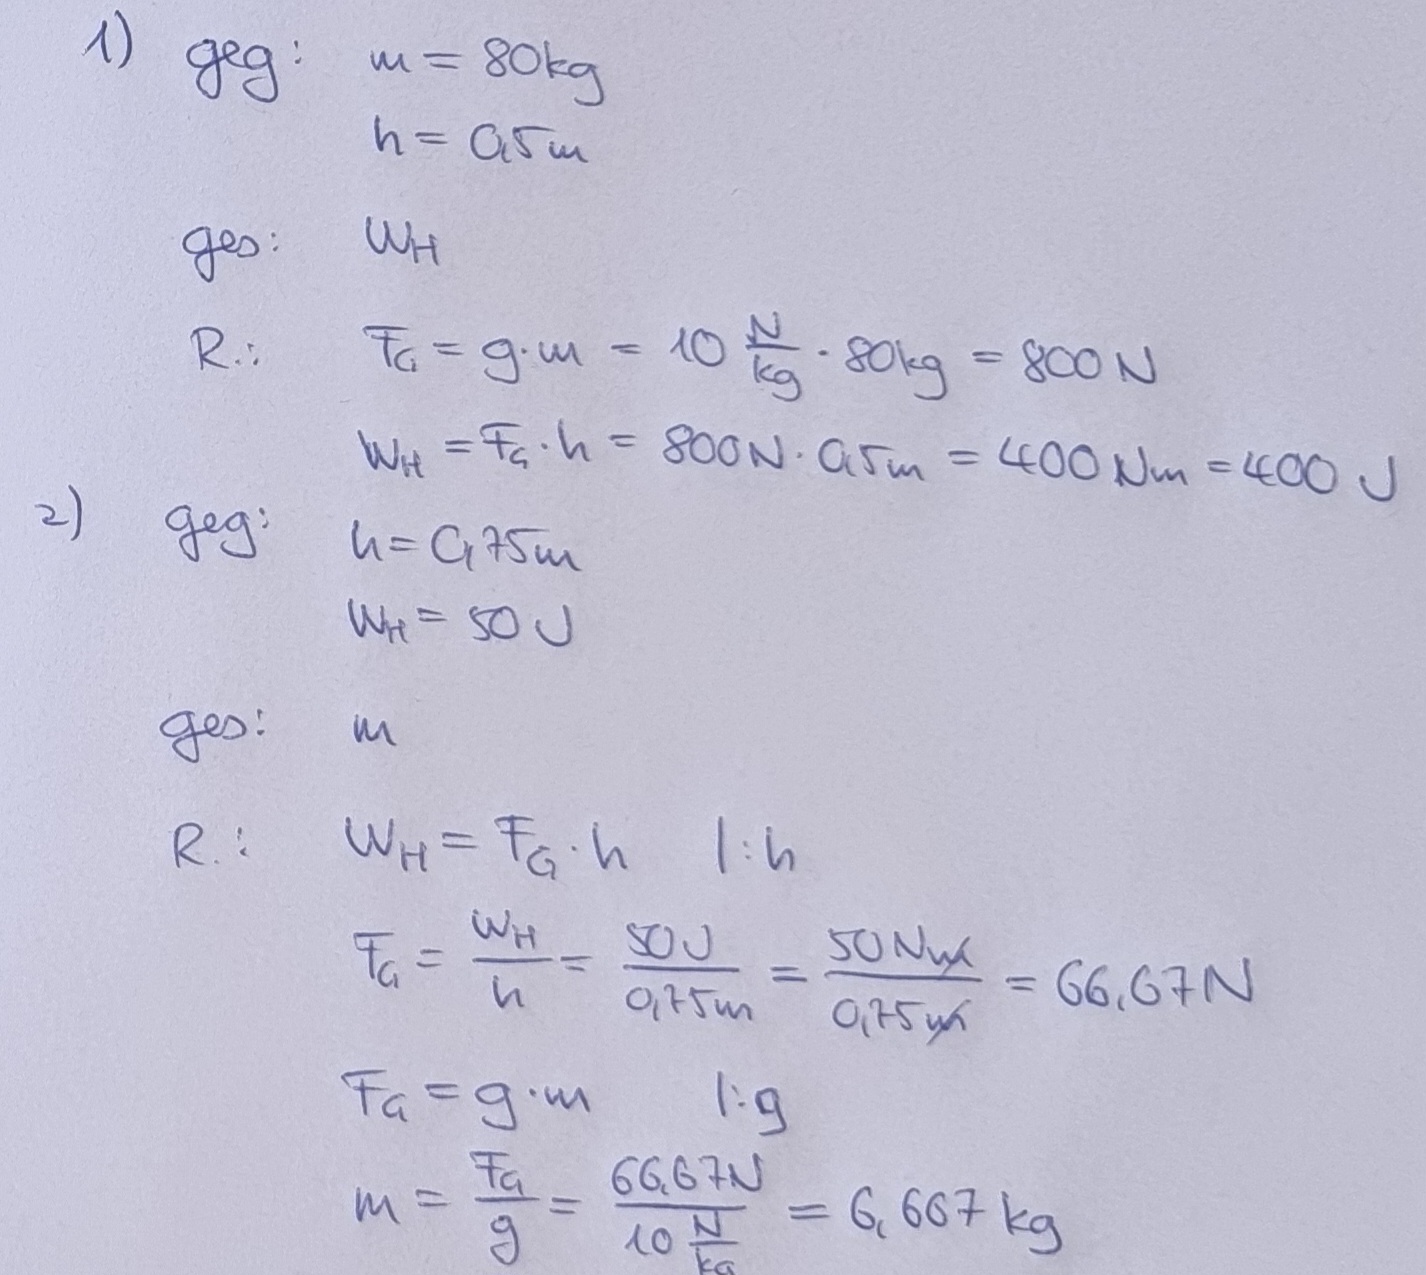 1) geg: m = 80kg
h = 0,5m
ges: W_H
R.: F_G = g·m = 10 N/kg · 80kg = 800N
W_H = F_G·h = 800N·0,5m = 400Nm = 400J
2) geg: h = 0,75m
W_H = 50J
ges: m
R.: W_H = F_G·h |:h
F_G = W_H/h = 50J/0,75m = 50Nm/0,75m = 66,67N
F_G = g·m |:g
m = F_G/g = 66,67N/10 N/kg = 6,667kg